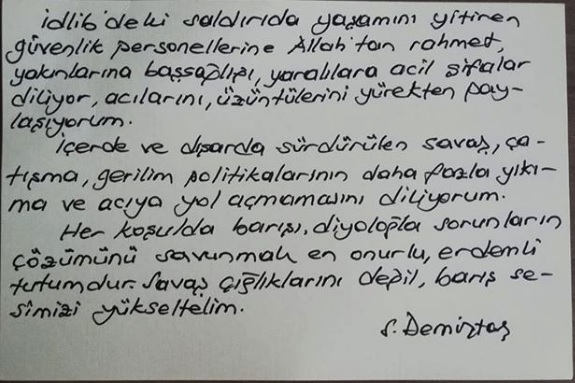 idlib'deki saldırıda yaşamını yitiren
güvenlik personellerine Allah'tan rahmet,
yakınlarına başsağlığı, yaralılara acil şifalar
diliyor, acılarını, üzüntülerini yürekten pay-
laşıyorum.
İçerde ve dışarda sürdürülen savaş, ça-
tışma, gerilim politikalarının daha fazla yıkı-
ma ve acıya yol açmamasını diliyorum.
Her koşulda barışı, diyoloğla sorunların
çözümünü savunmak en onurlu, erdemli
tutumdur. Savaş çığlıklarını değil, barış se-
simizi yükseltelim.
S. Demirtaş